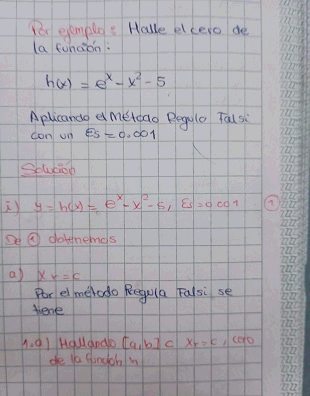 Por ejemplo: Halle el cero de
la función.
h(x) = e^x - x^2 - 5
Aplicando el Método Regulo Falsi
con un Es = 0.001
Solución
i) y = h(x) = e^x - x^2 - 5, Es = 0.001 ①
De ① obtenemos
a) Xr = c
Por el método Regula Falsi se
tiene
1.a) Hallando [a,b] c Xr = c, cero
de la función h